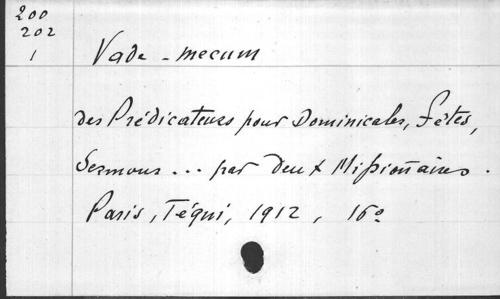 200
202
1
Vade-mecum
des Prédicateurs pour Dominicales, Fêtes,
Sermons... par Deux Missionnaires.
Paris, Téqui, 1912, 16º